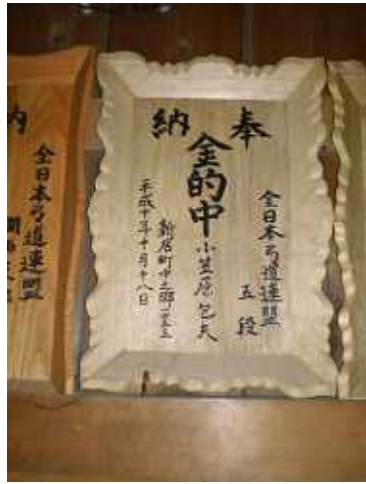 奉納
全日本弓道連盟
五段
金的中
小笠原包夫
平成十年十月十八日
納
全日本弓道連盟